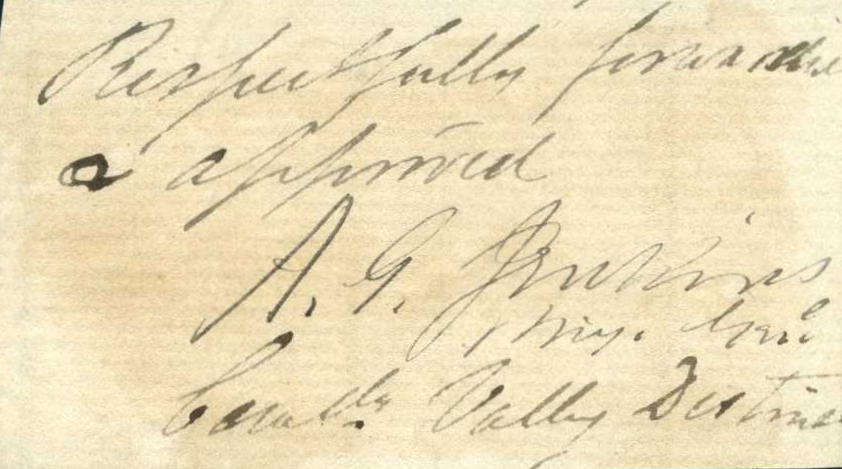 Respectfully forwarded
& approved
A. G. Jenkins
Brig. Genl
Cavaly. Valley District